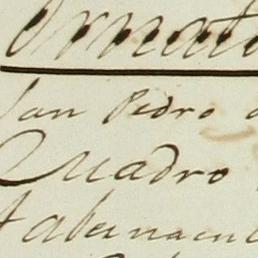 Ornat
San Pedro
Quadro
tabernacul